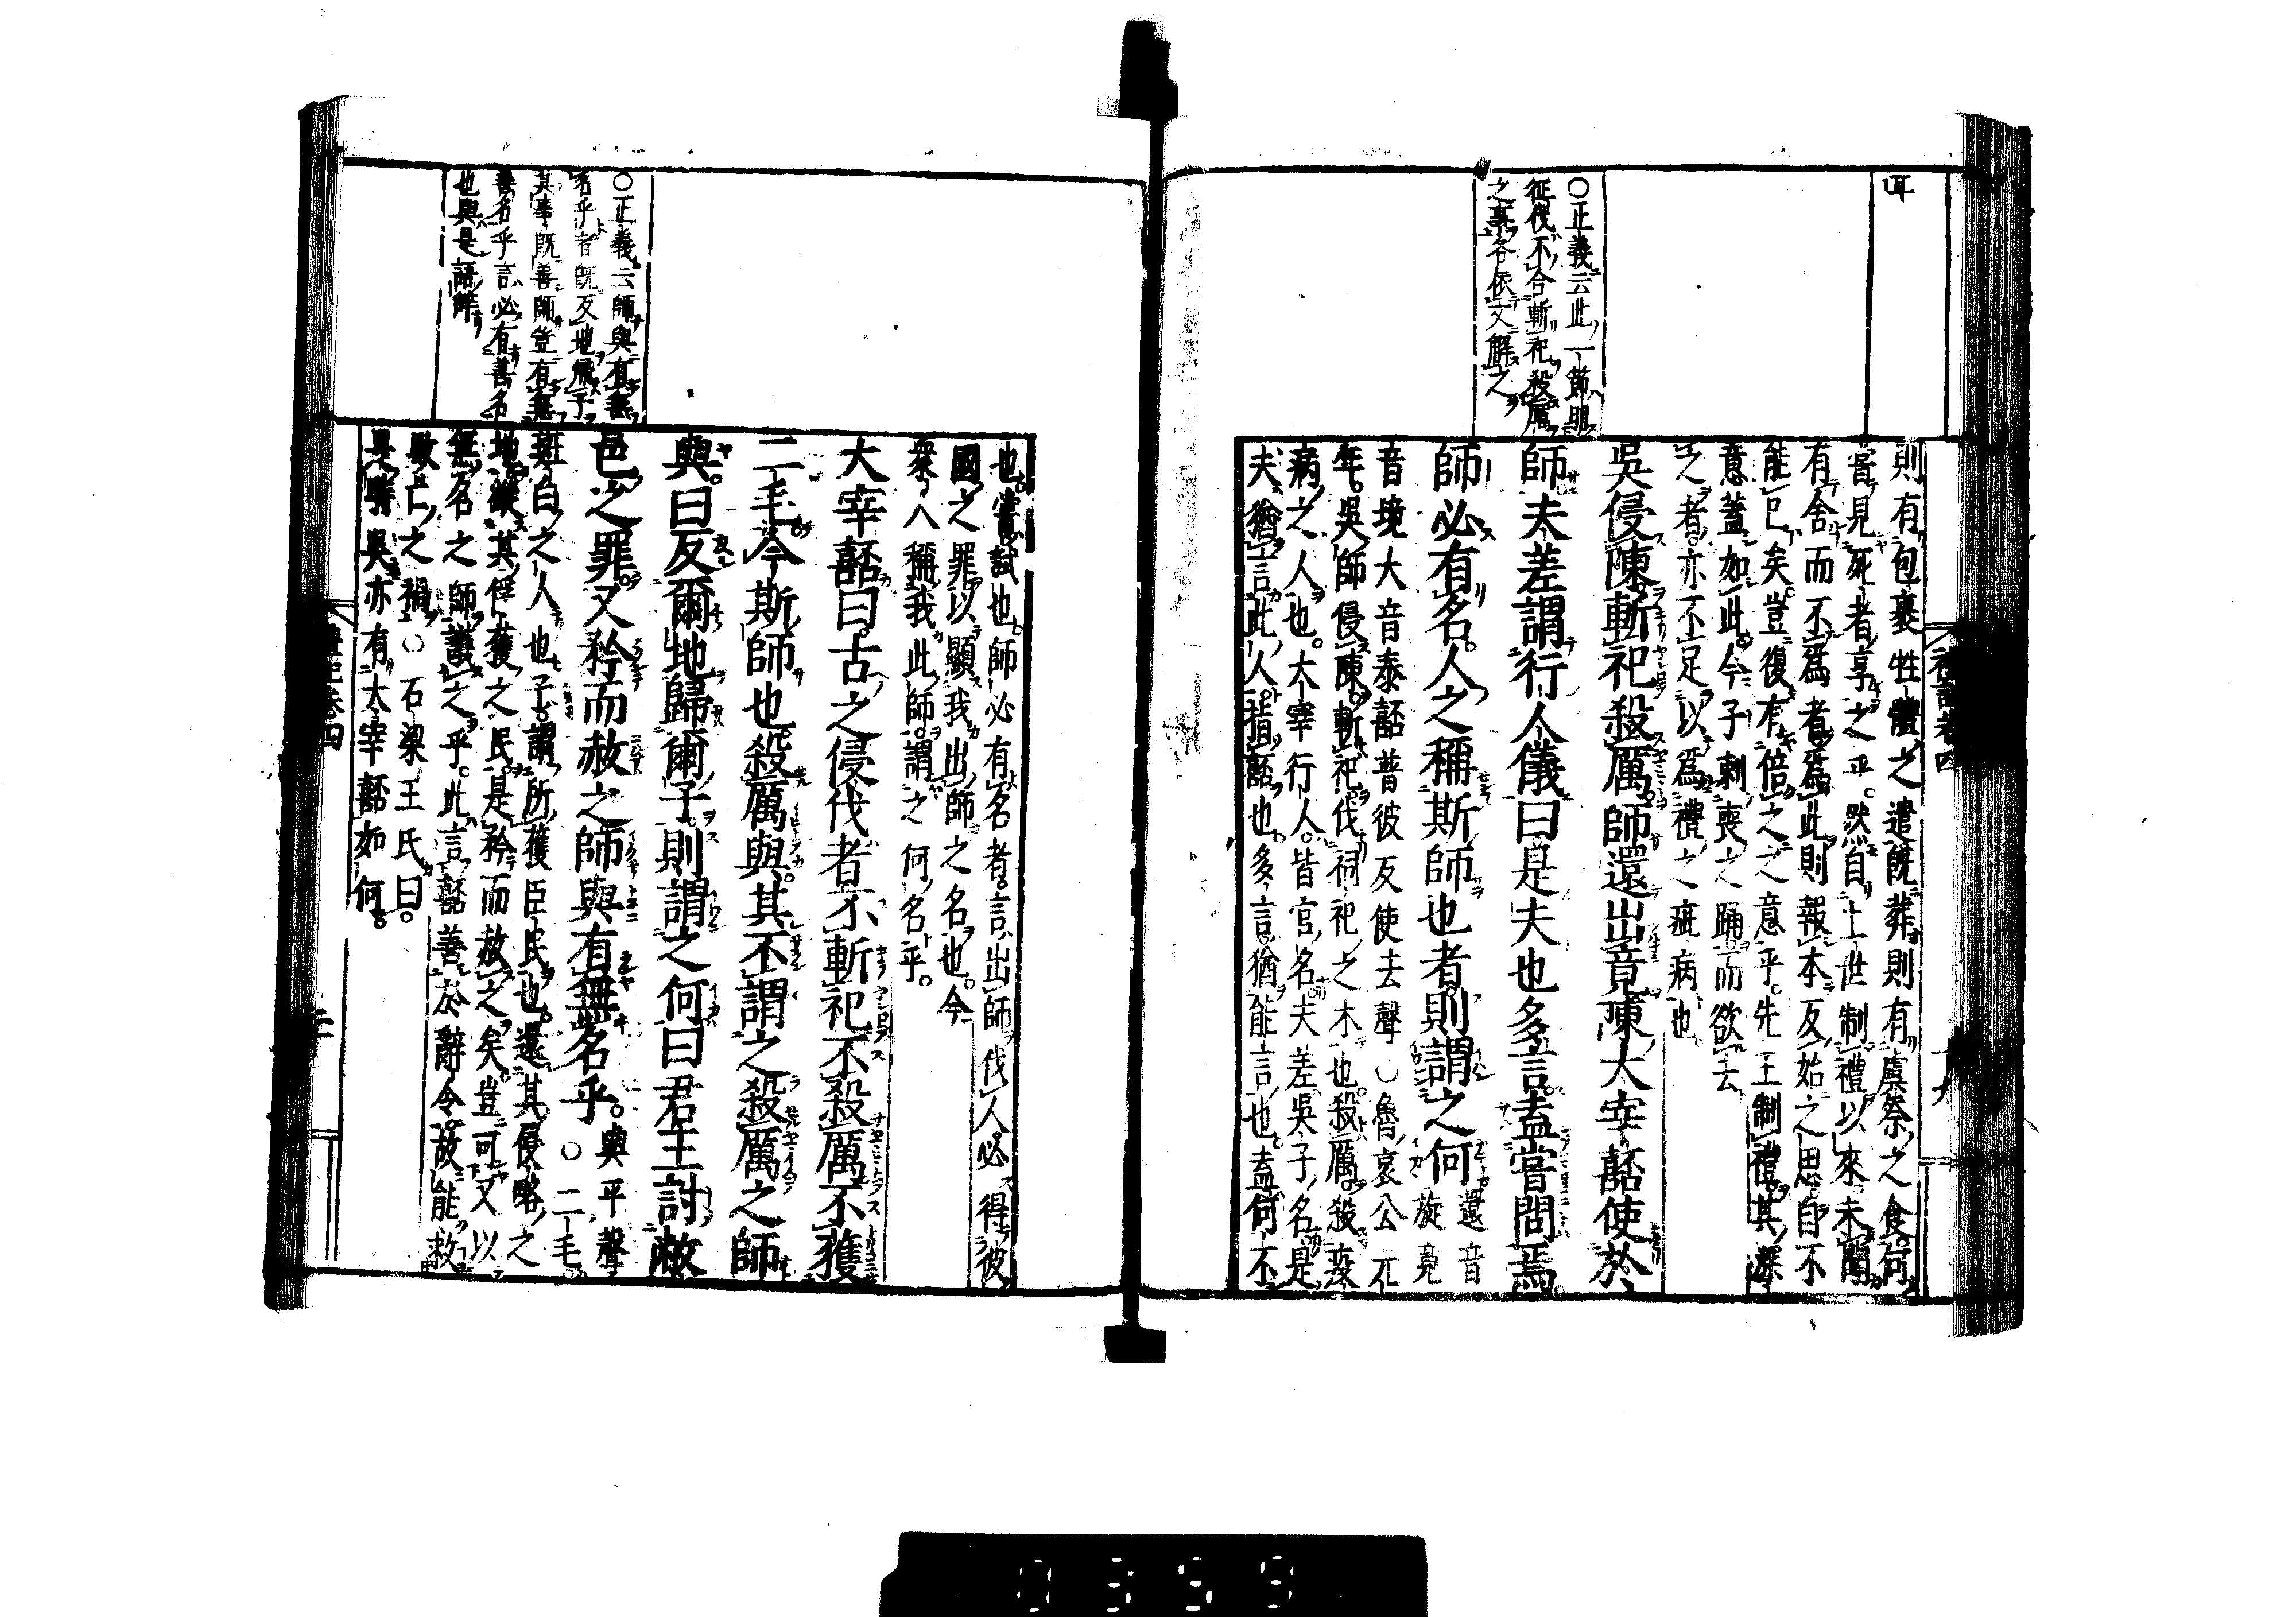 耳
○正義云此一節明
征伐不合斬祀殺厲
之事各依文解之
則有包裹牲體之遣既葬則有虞祭之食何
嘗見死者享之乎然自上世制禮以來未聞
有舍而不爲者爲此則報本反始之思自不
能已矣豈復有倍之之意乎先王制禮其深
意蓋如此今子刺喪之踊而欲去
之者亦不足以爲禮之疵病也
吳侵陳斬祀殺厲師還出竟陳大宰嚭使於
師夫差謂行人儀曰是夫也多言盍嘗問焉
師必有名人之稱斯師也者則謂之何
還音
旋竟
音境大音泰嚭普彼反使去聲○魯哀公元
年吳師侵陳斬祀伐祠祀之木也殺厲殺疫
病之人也大宰行人皆官名夫差吳子名是
夫猶言此人指嚭也多言猶能言也盍何不
禮記卷四
十九
○正義云師與有無
名乎者既反地歸子
其事既善師豈有無
善名乎言必有善名
也與是語辭
也嘗試也師必有名者言出師伐人必得彼
國之罪以顯我出師之名也今
衆人稱我此師謂之何名乎
大宰嚭曰古之侵伐者不斬祀不殺厲不獲
二毛今斯師也殺厲與其不謂之殺厲之師
與曰反爾地歸爾子則謂之何曰君王討敝
邑之罪又矜而赦之師與有無名乎
與平聲
○二毛
斑白之人也子謂所獲臣民也還其侵略之
地縱其俘獲之民是矜而赦之矣豈可又以
無名之師議之乎此言嚭善於辭令故能救
敗亡之禍○石梁王氏曰
是時吳亦有大宰嚭如何